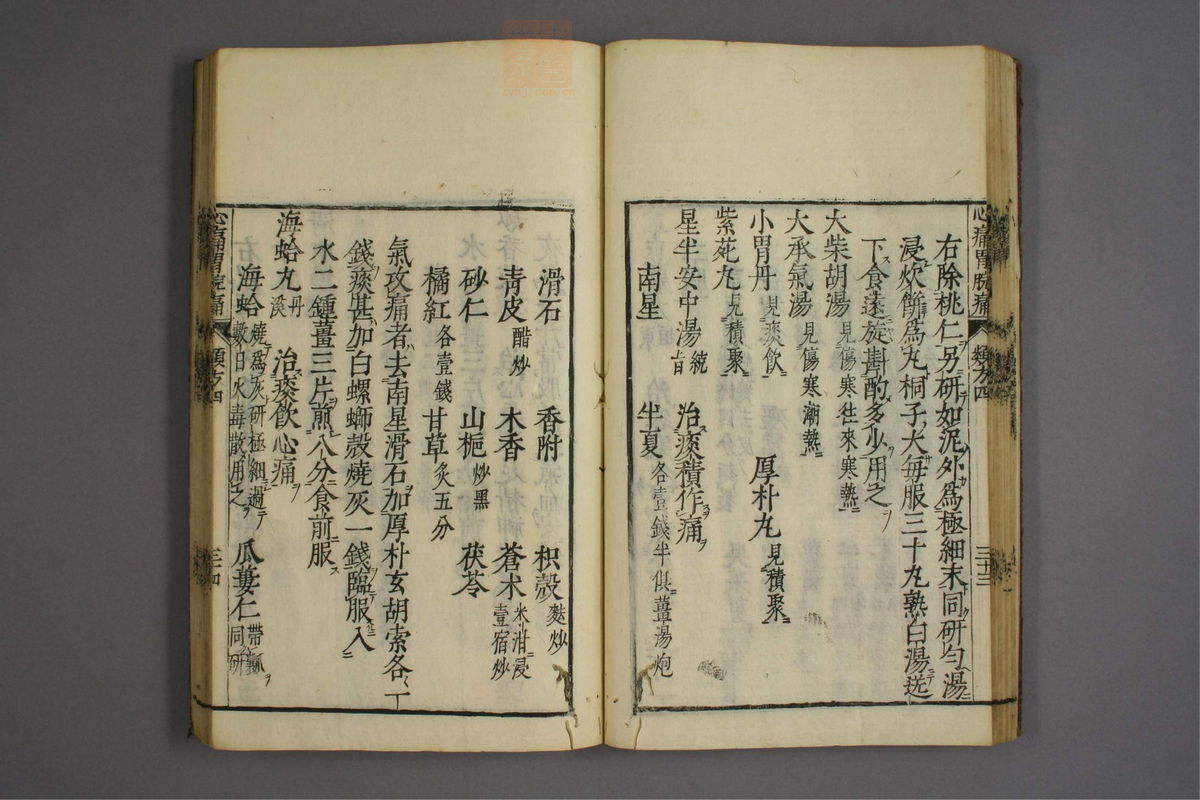 心痛胃脘痛 類方四 三十三
右除桃仁另研如泥外爲極細末同研匀湯
浸炊餅爲丸桐子大每服三十丸熟白湯送
下食遠旋斟酌多少用之
大柴胡湯 見傷寒往來寒熱
大承氣湯 見傷寒潮熱
小胃丹 見痰飲 厚朴丸 見積聚
紫苑丸 見積聚
星半安中湯 統旨 治痰積作痛
南星 半夏 各壹錢半俱薑湯炮
滑石 香附 枳殼 麩炒
青皮 醋炒 木香 蒼术 米泔浸壹宿炒
砂仁 山梔 炒黑 茯苓
橘紅 各壹錢 甘草 炙五分
氣攻痛者去南星滑石加厚朴玄胡索各一
錢痰甚加白螺螄殼燒灰一錢臨服入
水二鍾薑三片煎八分食前服
海蛤丸 丹溪 治痰飲心痛
海蛤 燒爲灰研極細過數日火毒散用之 瓜蔞仁 帶瓤同研
心痛胃脘痛 類方四 三十四